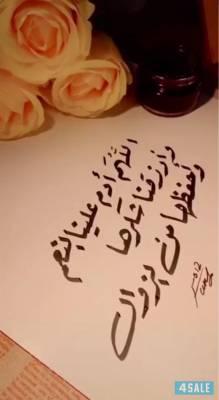 اللهم أدم علينا النعم
وارزقنا شكرها
واحفظها من الزوال
4SALE